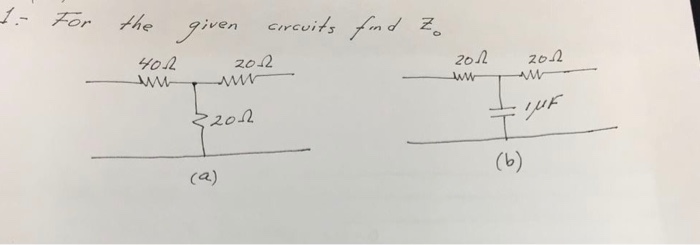 1.- For the given circuits find Zo
40Ω 20Ω 20Ω 20Ω
20Ω 1μF
(a) (b)